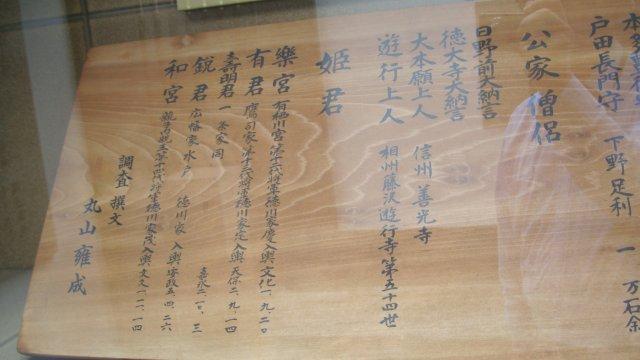 戸田長門守 下野足利 一万石余
公家僧侶
日野前大納言
徳大寺大納言
大本願上人 信州 善光寺
遊行上人 相州藤沢遊行寺第五十四世
姫君
樂宮 有栖川宮 第十二代将軍徳川家慶入輿 文化一、九、二〇
有君 鷹司家 第十三代将軍徳川家定入輿 天保二、九、一四
壽明君 一条家 同 嘉永二、一〇、三
鋭君 広幡家 水戸 徳川家 入輿 安政五、四、二六
和宮 第十四代将軍徳川家茂入輿 文久一、一一、一四
調査 撰文
丸山雍成